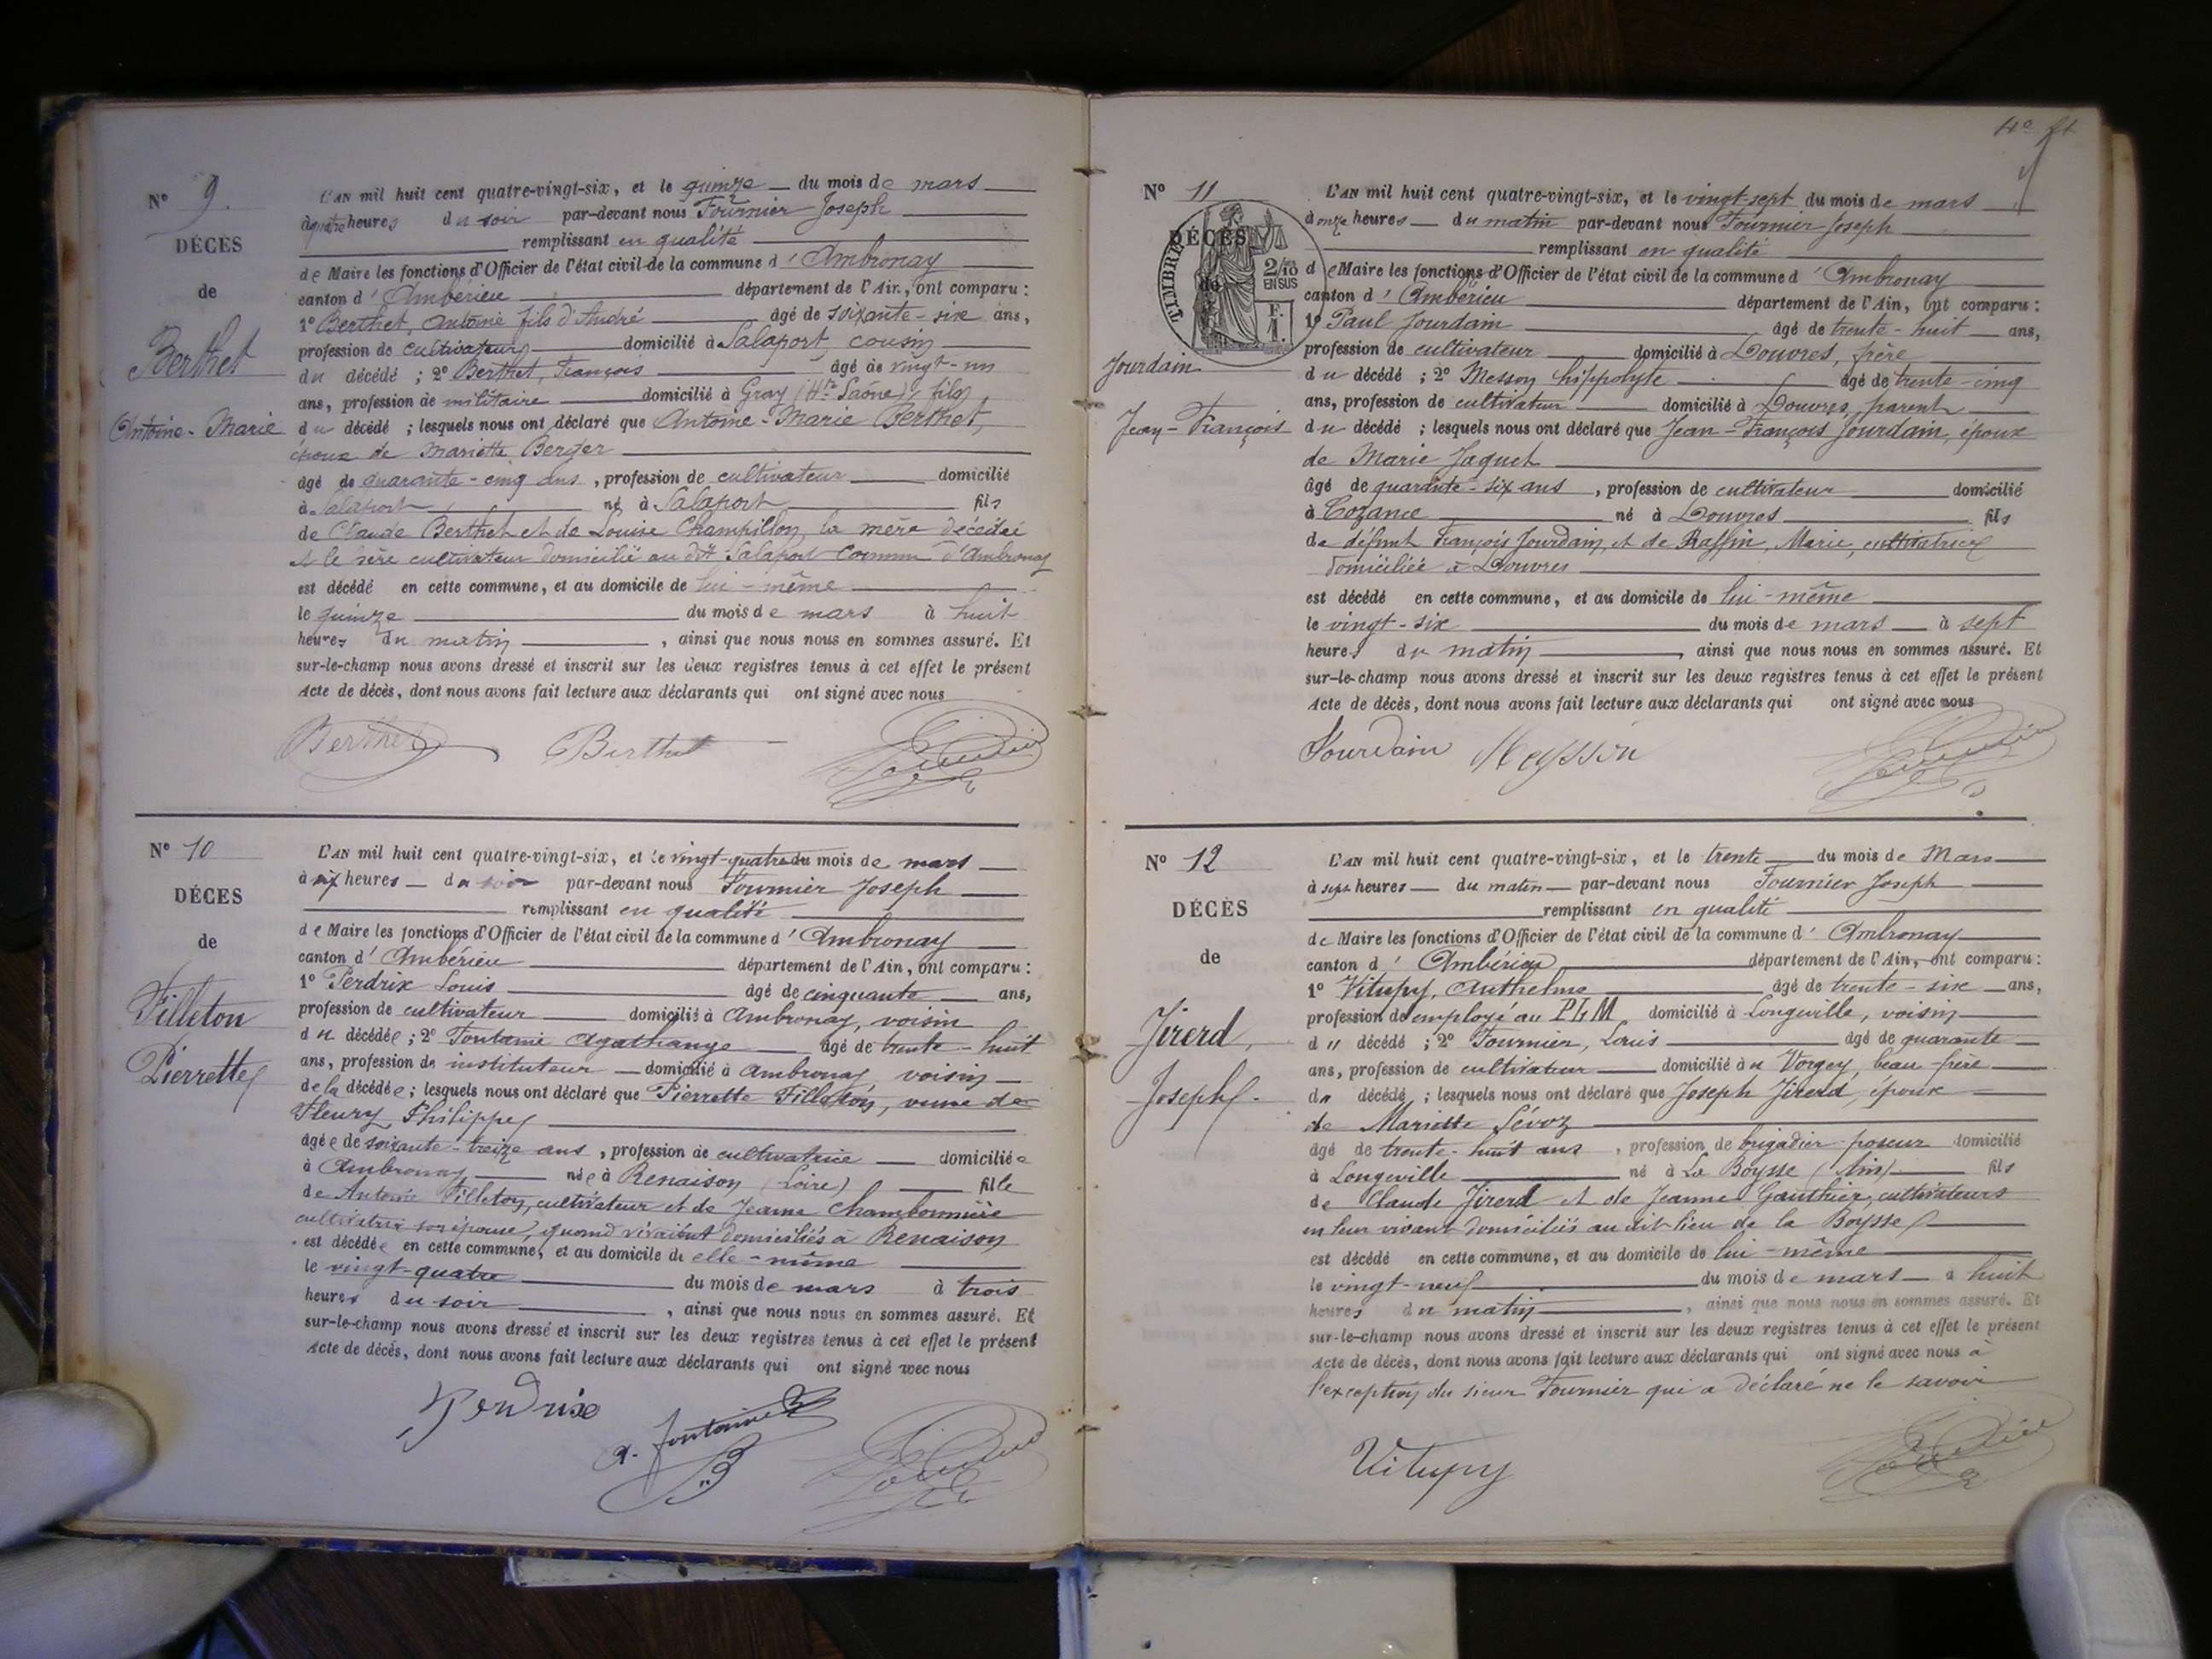 N° 9.
DÉCÈS
de
Berthet
Antoine-Marie
L'AN mil huit cent quatre-vingt-six, et le quinze du mois de mars
à quatre heures du soir par-devant nous Fournier Joseph
remplissant en qualité
de Maire les fonctions d'Officier de l'état civil de la commune d'Ambronay
canton d'Ambérieu département de l'Ain, ont comparu :
1° Berthet, Antoine fils d'André âgé de soixante-six ans,
profession de cultivateur domicilié à Salaport cousin
du décédé ; 2° Berthet, François âgé de vingt-un
ans, profession de militaire domicilié à Gray (Hte Saône), fils
du décédé ; lesquels nous ont déclaré que Antoine-Marie Berthet,
époux de Mariette Berger
âgé de quarante-cinq ans, profession de cultivateur domicilié
à Salaport né à Salaport fils
de Claude Berthet et de Louise Champillon, la mère décédée
et le père cultivateur domicilié au dit Salaport Commne d'Ambronay
est décédé en cette commune, et au domicile de lui-même
le quinze du mois de mars à huit
heures du matin, ainsi que nous nous en sommes assuré. Et
sur-le-champ nous avons dressé et inscrit sur les deux registres tenus à cet effet le présent
Acte de décès, dont nous avons fait lecture aux déclarants qui ont signé avec nous
Berthet Berthet
N° 10
DÉCES
de
Filleton
Pierrette
L'AN mil huit cent quatre-vingt-six, et le vingt-quatre du mois de mars
à six heures du soir par-devant nous Fournier Joseph
remplissant en qualité
de Maire les fonctions d'Officier de l'état civil de la commune d'Ambronay
canton d'Ambérieu département de l'Ain, ont comparu :
1° Perdrix Louis âgé de cinquante ans,
profession de cultivateur domicilié à Ambronay, voisin
du décédée ; 2° Fontaine Agathange âgé de trente-huit
ans, profession de instituteur domicilié à Ambronay voisin
de la décédée ; lesquels nous ont déclaré que Pierrette Filleton, veuve de
Fleury Philippe
âgée de soixante-treize ans, profession de cultivatrice domiciliée
à Ambronay née à Renaison (Loire) fille
de Antoine Filleton, cultivateur et de Jeanne Chambonnière
cultivatrice son épouse, quand vivaient domiciliés à Renaison
est décédée en cette commune, et au domicile de elle-même
le vingt-quatre du mois de mars à trois
heures du soir, ainsi que nous nous en sommes assuré. Et
sur-le-champ nous avons dressé et inscrit sur les deux registres tenus à cet effet le présent
Acte de décès, dont nous avons fait lecture aux déclarants qui ont signé avec nous
Perdrix
A. Fontaine
4e ft
N° 11
DÉCÈS
de
TIMBRE
2/10
EN SUS
F.
1.
Jourdain
Jean-François
L'AN mil huit cent quatre-vingt-six, et le vingt-sept du mois de mars
à onze heures du matin par-devant nous Fournier Joseph
remplissant en qualité
de Maire les fonctions d'Officier de l'état civil de la commune d'Ambronay
canton d'Ambérieu département de l'Ain, ont comparu :
1° Paul Jourdain âgé de trente-huit ans,
profession de cultivateur domicilié à Douvres, frère
du décédé ; 2° Messon hippolyte âgé de trente-cinq
ans, profession de cultivateur domicilié à Douvres, parent
du décédé ; lesquels nous ont déclaré que Jean-François Jourdain, époux
de Marie Jaquet
âgé de quarante-six ans, profession de cultivateur domicilié
à Cozance né à Douvres fils
de défunt François Jourdain, et de Raffin, Marie, cultivatrice
domiciliée à Douvres
est décédé en cette commune, et au domicile de lui-même
le vingt-six du mois de mars à sept
heures du matin, ainsi que nous nous en sommes assuré. Et
sur-le-champ nous avons dressé et inscrit sur les deux registres tenus à cet effet le présent
Acte de décès, dont nous avons fait lecture aux déclarants qui ont signé avec nous
Jourdain Meysson
N° 12
DÉCÈS
de
Jirerd,
Joseph
L'AN mil huit cent quatre-vingt-six, et le trente du mois de Mars
à sept heures du matin par-devant nous Fournier Joseph
remplissant en qualité
de Maire les fonctions d'Officier de l'état civil de la commune d'Ambronay
canton d'Ambérieu département de l'Ain, ont comparu :
1° Vitupy, Anthelme âgé de trente-six ans,
profession de employé au PLM domicilié à Longeville, voisin
du décédé ; 2° Fournier, Louis âgé de quarante
ans, profession de cultivateur domicilié au Vorgey, beau-frère
du décédé ; lesquels nous ont déclaré que Joseph Jirerd, époux
de Mariette Sévoz
âgé de trente-huit ans, profession de brigadier poseur domicilié
à Longeville né à La Boysse (Ain) fils
de Claude Jirerd et de Jeanne Gauthier, cultivateurs
en leur vivant domiciliés au dit lieu de la Boysse
est décédé en cette commune, et au domicile de lui-même
le vingt-neuf du mois de mars à huit
heures du matin, ainsi que nous nous en sommes assuré. Et
sur-le-champ nous avons dressé et inscrit sur les deux registres tenus à cet effet le présent
Acte de décès, dont nous avons fait lecture aux déclarants qui ont signé avec nous à
l'exception du sieur Fournier qui a déclaré ne le savoir
Vitupy